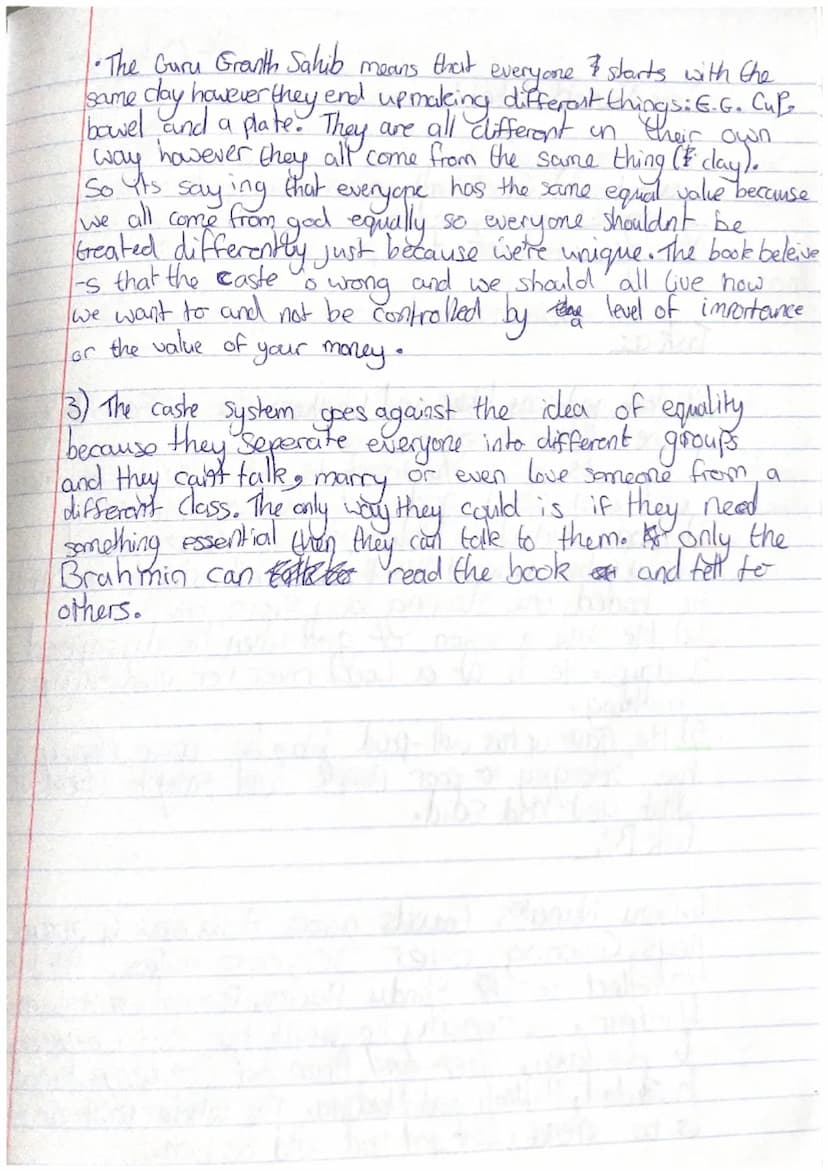 • The Guru Granth Sahib means that everyone starts with the
same clay however they end up making different things: E.G. Cup,
bowel and a plate. They are all different in their own
way however they all come from the same thing (clay).
So it's saying that everyone has the same equal value because
we all come from god equally so everyone shouldn't be
treated differently just because we're unique. The book beleive
-s that the caste is wrong and we should all live how
we want to and not be controlled by a level of importance
or the value of your money.
3) The caste system goes against the idea of equality
because they seperate everyone into different groups
and they can't talk, marry or even love someone from a
different class. The only way they could is if they need
something essential then they can talk to them. only the
Brahmin can read the book and tell to
others.